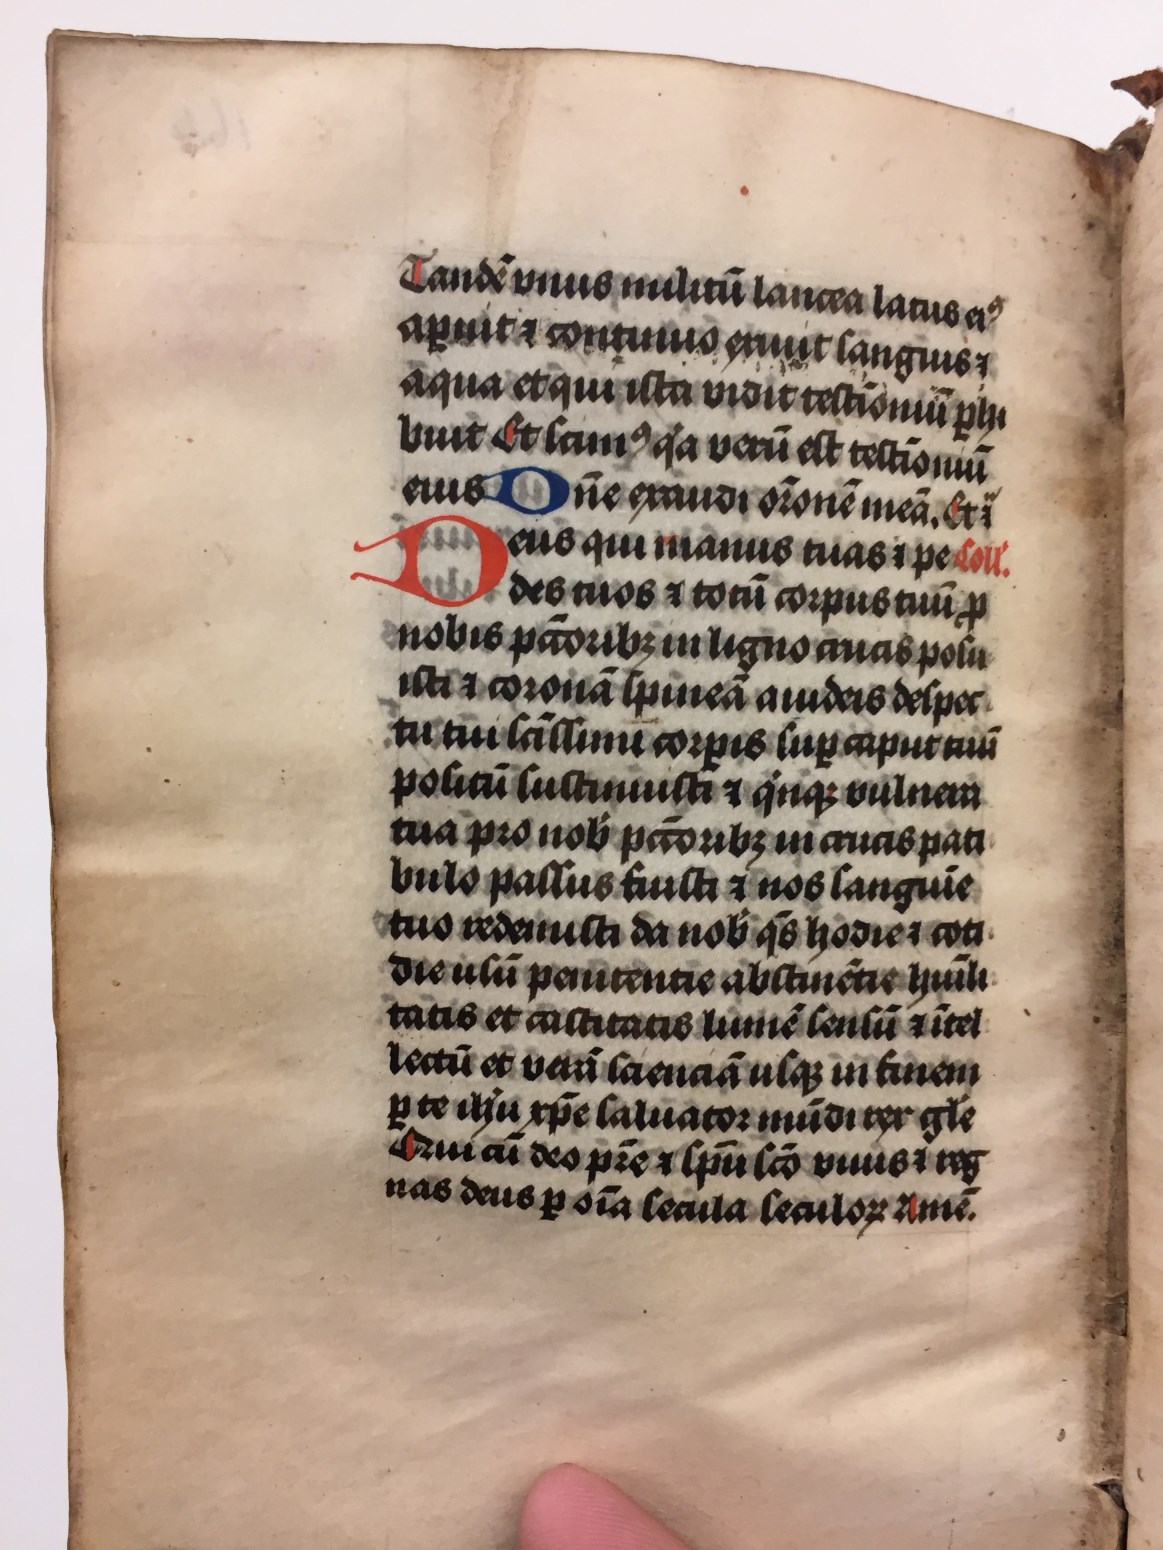 Tandē vnus militū lancea latus eiꝰ
aꝑuit ⁊ continuo exiuit sanguis ⁊
aqua et qui ista vidit testīoniū ꝑhi
buit Et scimꝰ q̇a verū est testīoniū
eius Dn̄e exaudi orōnē meā. Et ī
Deus qui manus tuas ⁊ pe Coll'.
des tuos ⁊ totū corpus tuū ꝓ
nobis pctōribꝫ in ligno crucis posu
isti ⁊ coronā spineā a iudeis despec
tu tui sctīssimi corꝑis suꝑ caput tuū
positū sustinuisti ⁊ q̇nqꝫ vulnera
tua pro nob̕ pctōribꝫ in crucis pati
bulo passus fuisti ⁊ nos sanguīe
tuo redemisti da nob̕ q̄s hodie ⁊ coti
die usū penitentie abstinētie humīli
tatis et castitatis lumē sensū ⁊ ītel
lectū et verā scienciā usqꝫ in finem
ꝑ te ih̄u xp̄e saluator mūdi rex gl̄e
Qui cū deo pr̄e ⁊ sp̄u scō viuis ⁊ reg
nas deus ꝑ oīa secula seculoꝝ Amē.